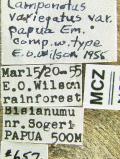 Camponotus
variegatus var.
papua Em.
comp. w. type
E.O. Wilson 1956
Mar15/20-55
E.O. Wilson
rainforest
Bisianumu
nr. Sogeri
PAPUA 500M
MCZ